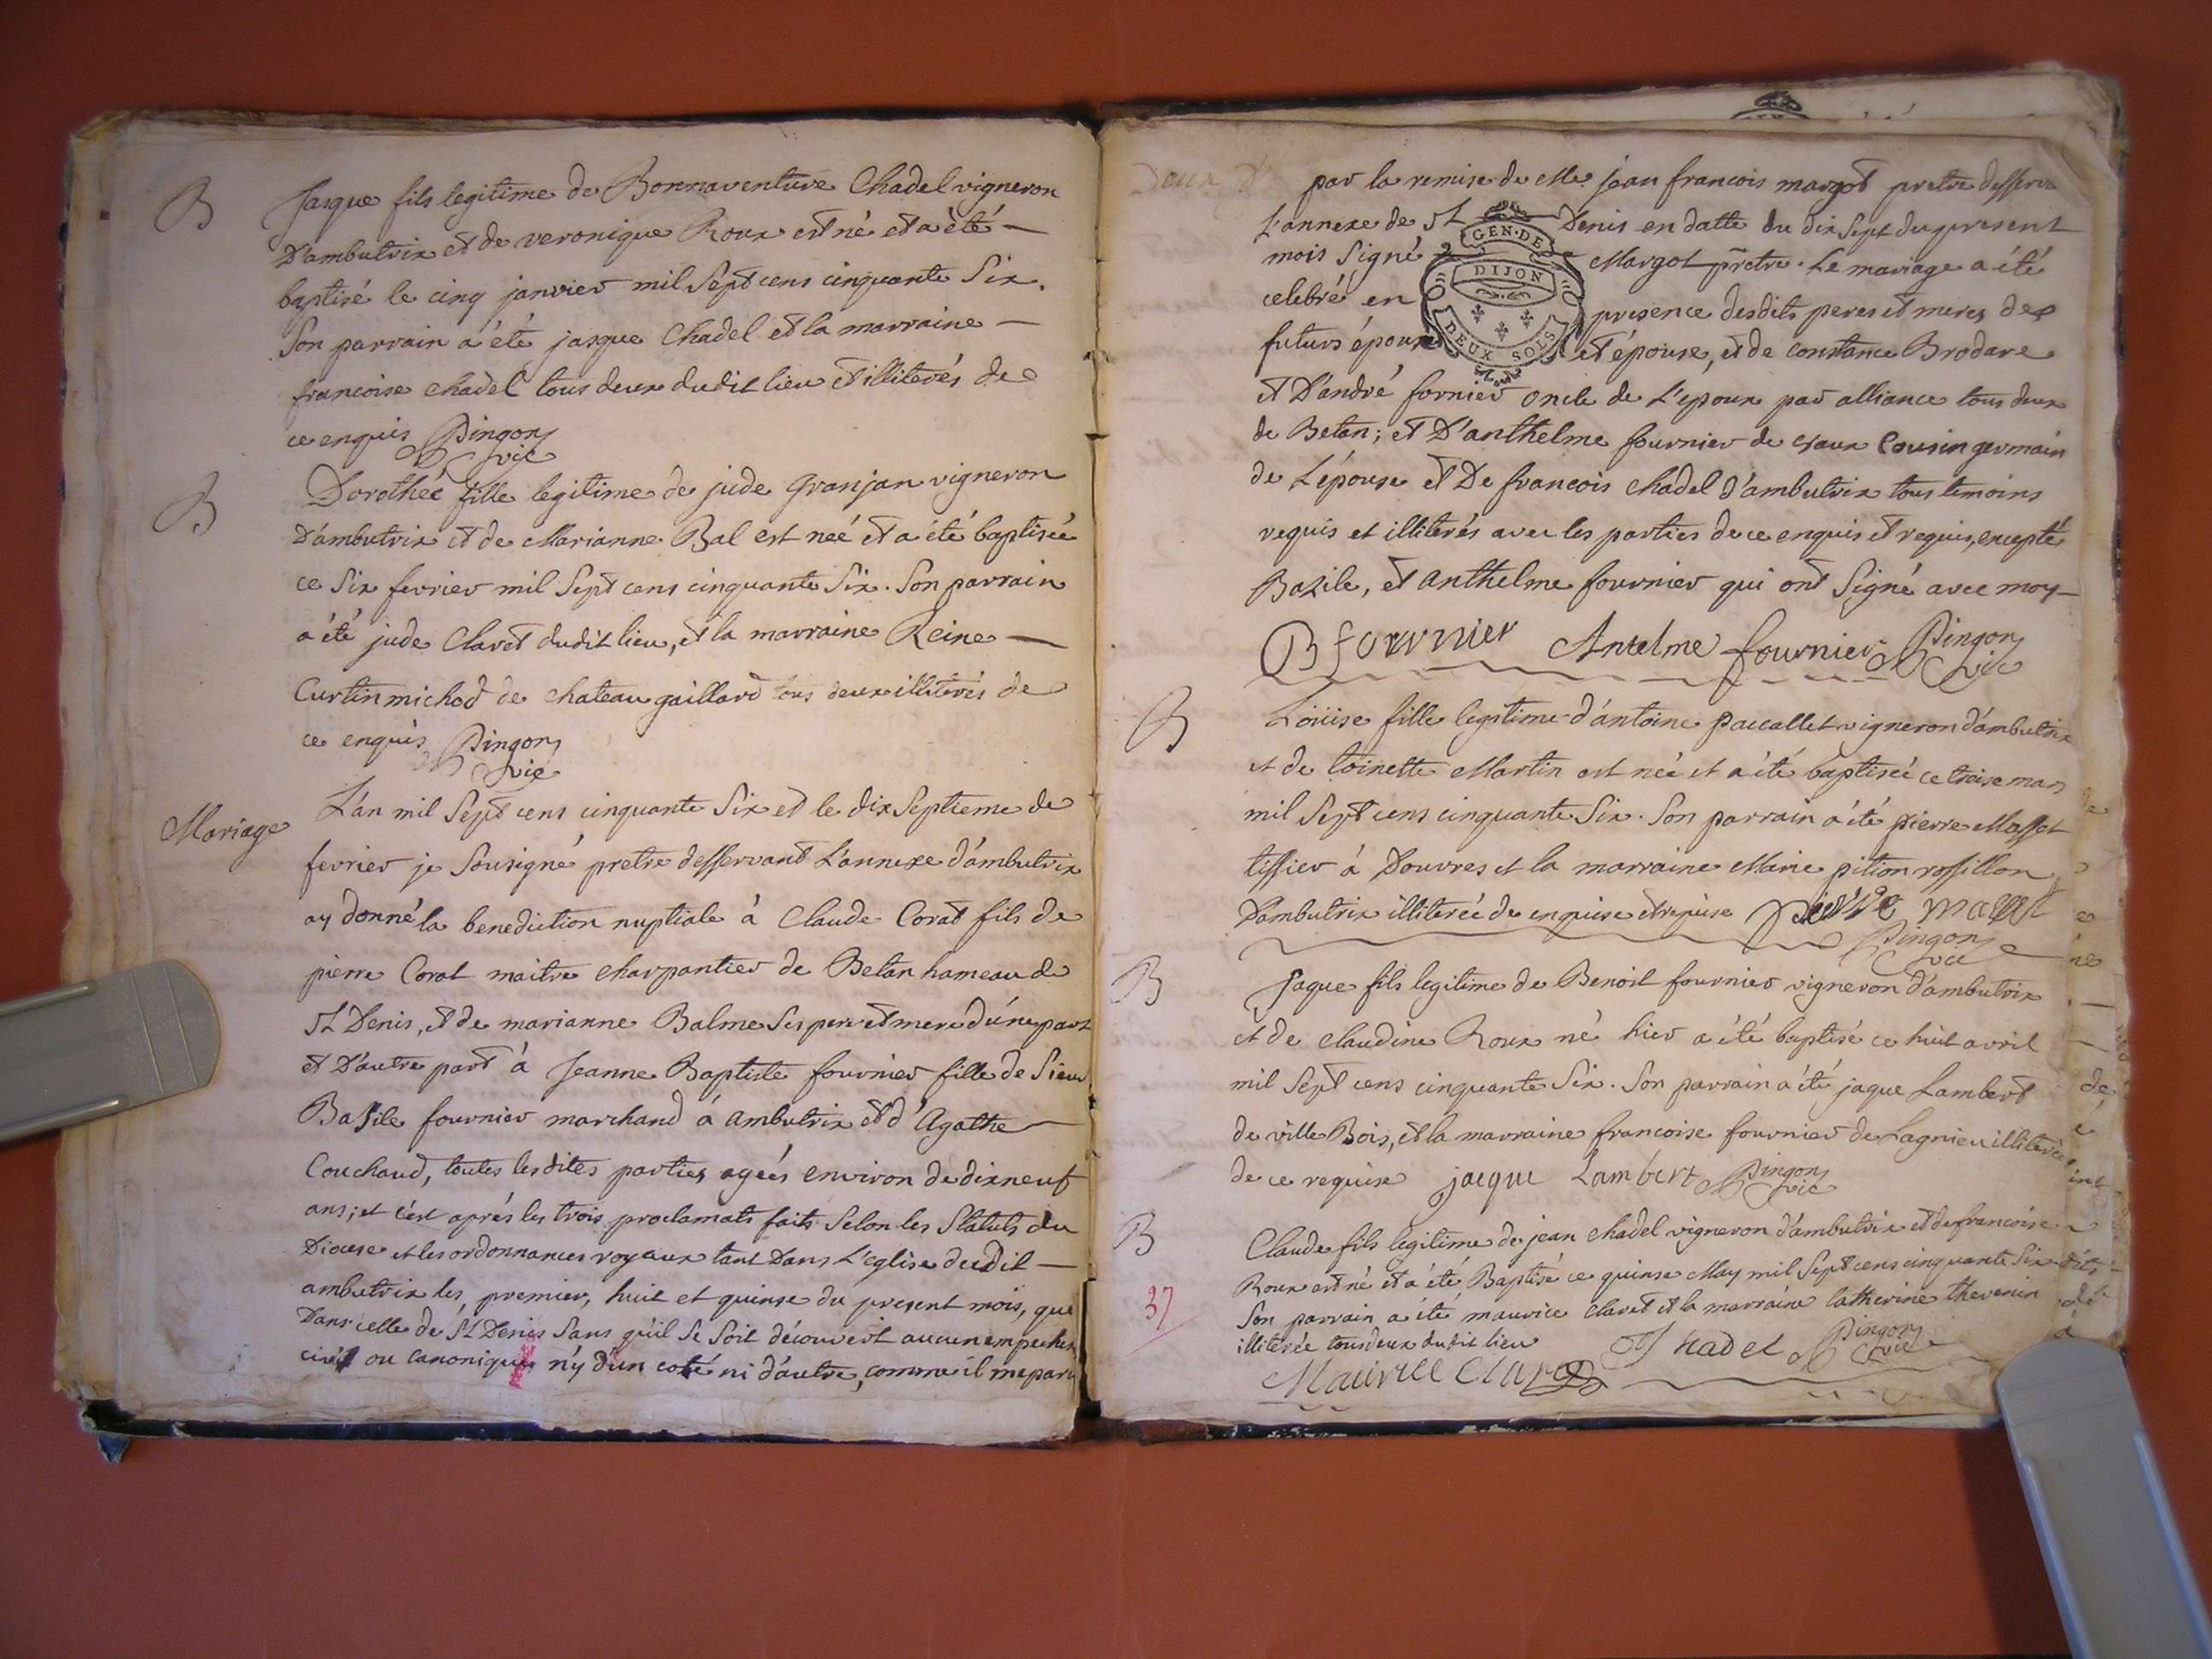 B
Jasque fils legitime de Bonnaventure Chadel vigneron
D'ambutrix et de veronique Roux est né et a été —
baptisé le cinq janvier mil Sept cens cinquante Six.
Son parrain a été jasque Chadel et la marraine —
francoise chadel tous deux dudit lieu et illiterés de
ce enquis Pingon
vic
B
Dorothée fille legitime de jude Granjan vigneron
D'ambutrix et de Marianne Bal est neé et a été baptiseé
ce Six fevrier mil Sept cens cinquante Six. Son parrain
a été jude Claret dudit lieu, et la marraine Reine —
Curtin michod de chateau gaillard tous deux illiterés de
ce enquis Pingon
vic
Mariage
L'an mil Sept cens cinquante Six et le dix Septieme de
fevrier je Sousigné pretre desservant L'annexe d'ambutrix
ay donné la benediction nuptiale à Claude Corat fils de
pierre Corat maitre charpantier de Betan hameau de
St Denis, et de marianne Balme Ses pere et mere d'une part
et D'autre part à Jeanne Baptiste fournier fille de Sieur
Basile fournier marchand à ambutrix et d'Agathe —
Couchaud, toutes lesdites parties ageés environ de dixneuf
ans; et c'est aprés les trois proclamats faits Selon les Statuts du
Diocese et les ordonnances royaux tant Dans L'eglise dudit —
ambutrix les premier, huit et quinse du present mois, que
Dans celle de St Denis Sans qu'il Se Soit découvert aucun empechem
civil ou canonique n'y d'un coté ni d'autre, comme il me paru
Deux
par la remise de Me jean francois margot pretre desserva
L'annexe de St Denis en datte du dix Sept du present
mois Signé Margot prêtre. Le mariage a été
celebré en presence desdits peres et meres des
futurs époux et épouse, et de constance Brodare
et D'andré fornier oncle de L'epoux par alliance tous deux
de Betan; et D'anthelme fournier de vaux Cousin germain
de L'épouse et De francois chadel d'ambutrix tous temoins
requis et illiterés avec les parties de ce enquis et requis, excepté
Bazile, et anthelme fournier qui ont Signé avec moy —
B fournier Antelme fournier Pingon
vic
GEN. DE
DIJON
DEUX SOLS
B
Loüise fille legitime d'antoine paccallet vigneron d'ambutrix
et de toinette Martin est neé et a été baptiseé ce treise mars
mil Sept cens cinquante Six. Son parrain a été pierre Masset
tissier à Douvres et la marraine Marie pition rossillon
D'ambutrix illitereé de enquise et requise pierre masset
Pingon
vic
B
Jaque fils legitime de Benoit fournier vigneron d'ambutrix
et de claudine Roux né hier a été baptisé ce huit avril
mil Sept cens cinquante Six. Son parrain a été jaque Lambert
de ville Bois, et la marraine francoise fournier de Lagnieu illitereé
de ce requise jacque Lambert Pingon
vic
B
Claude fils legitime de jean chadel vigneron d'ambutrix et de francoise
Roux est né et a été Baptisé ce quinse May mil Sept cens cinquante Six
Son parrain a été maurice claret et la marraine Catherine thevenin
illitereé tous deux dudit lieu J hadel Pingon
vic
Maurice Claret
37